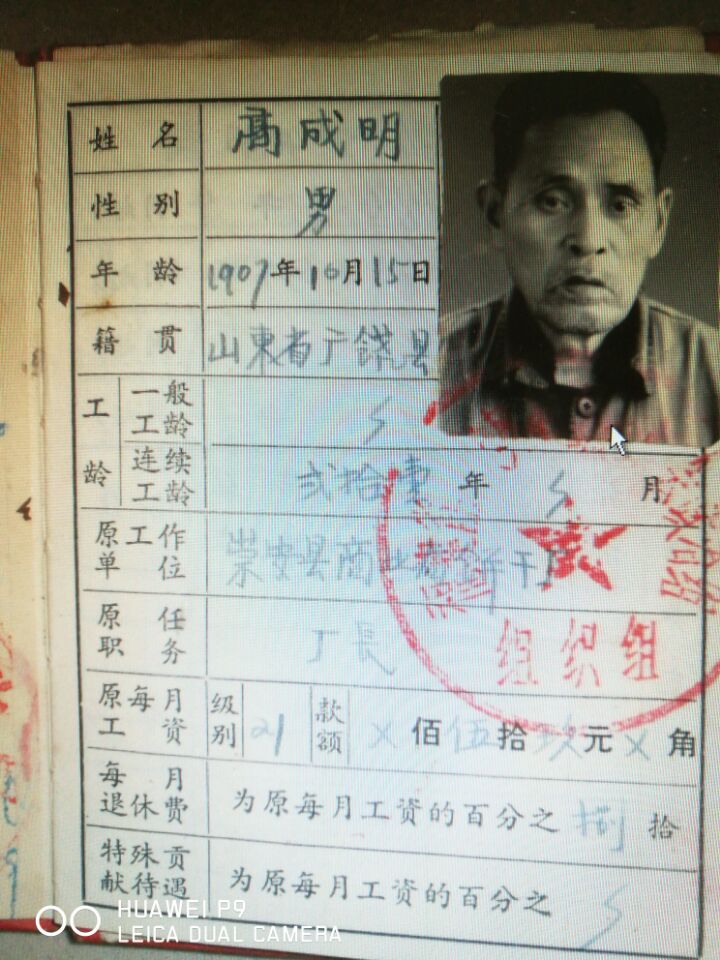 姓名 高成明
性别 男
年龄 1907年10月15日
籍贯 山東省广饶县
工龄 一般工龄
连续工龄 弍拾壹年 月
原工作单位 崇安县商业 饼干厂
原任职务 厂長
原每月工资 级别 21 款额 X佰伍拾玖元X角
每月退休费 为原每月工资的百分之捌拾
特殊贡献待遇 为原每月工资的百分之
组织组
HUAWEI P9
LEICA DUAL CAMERA